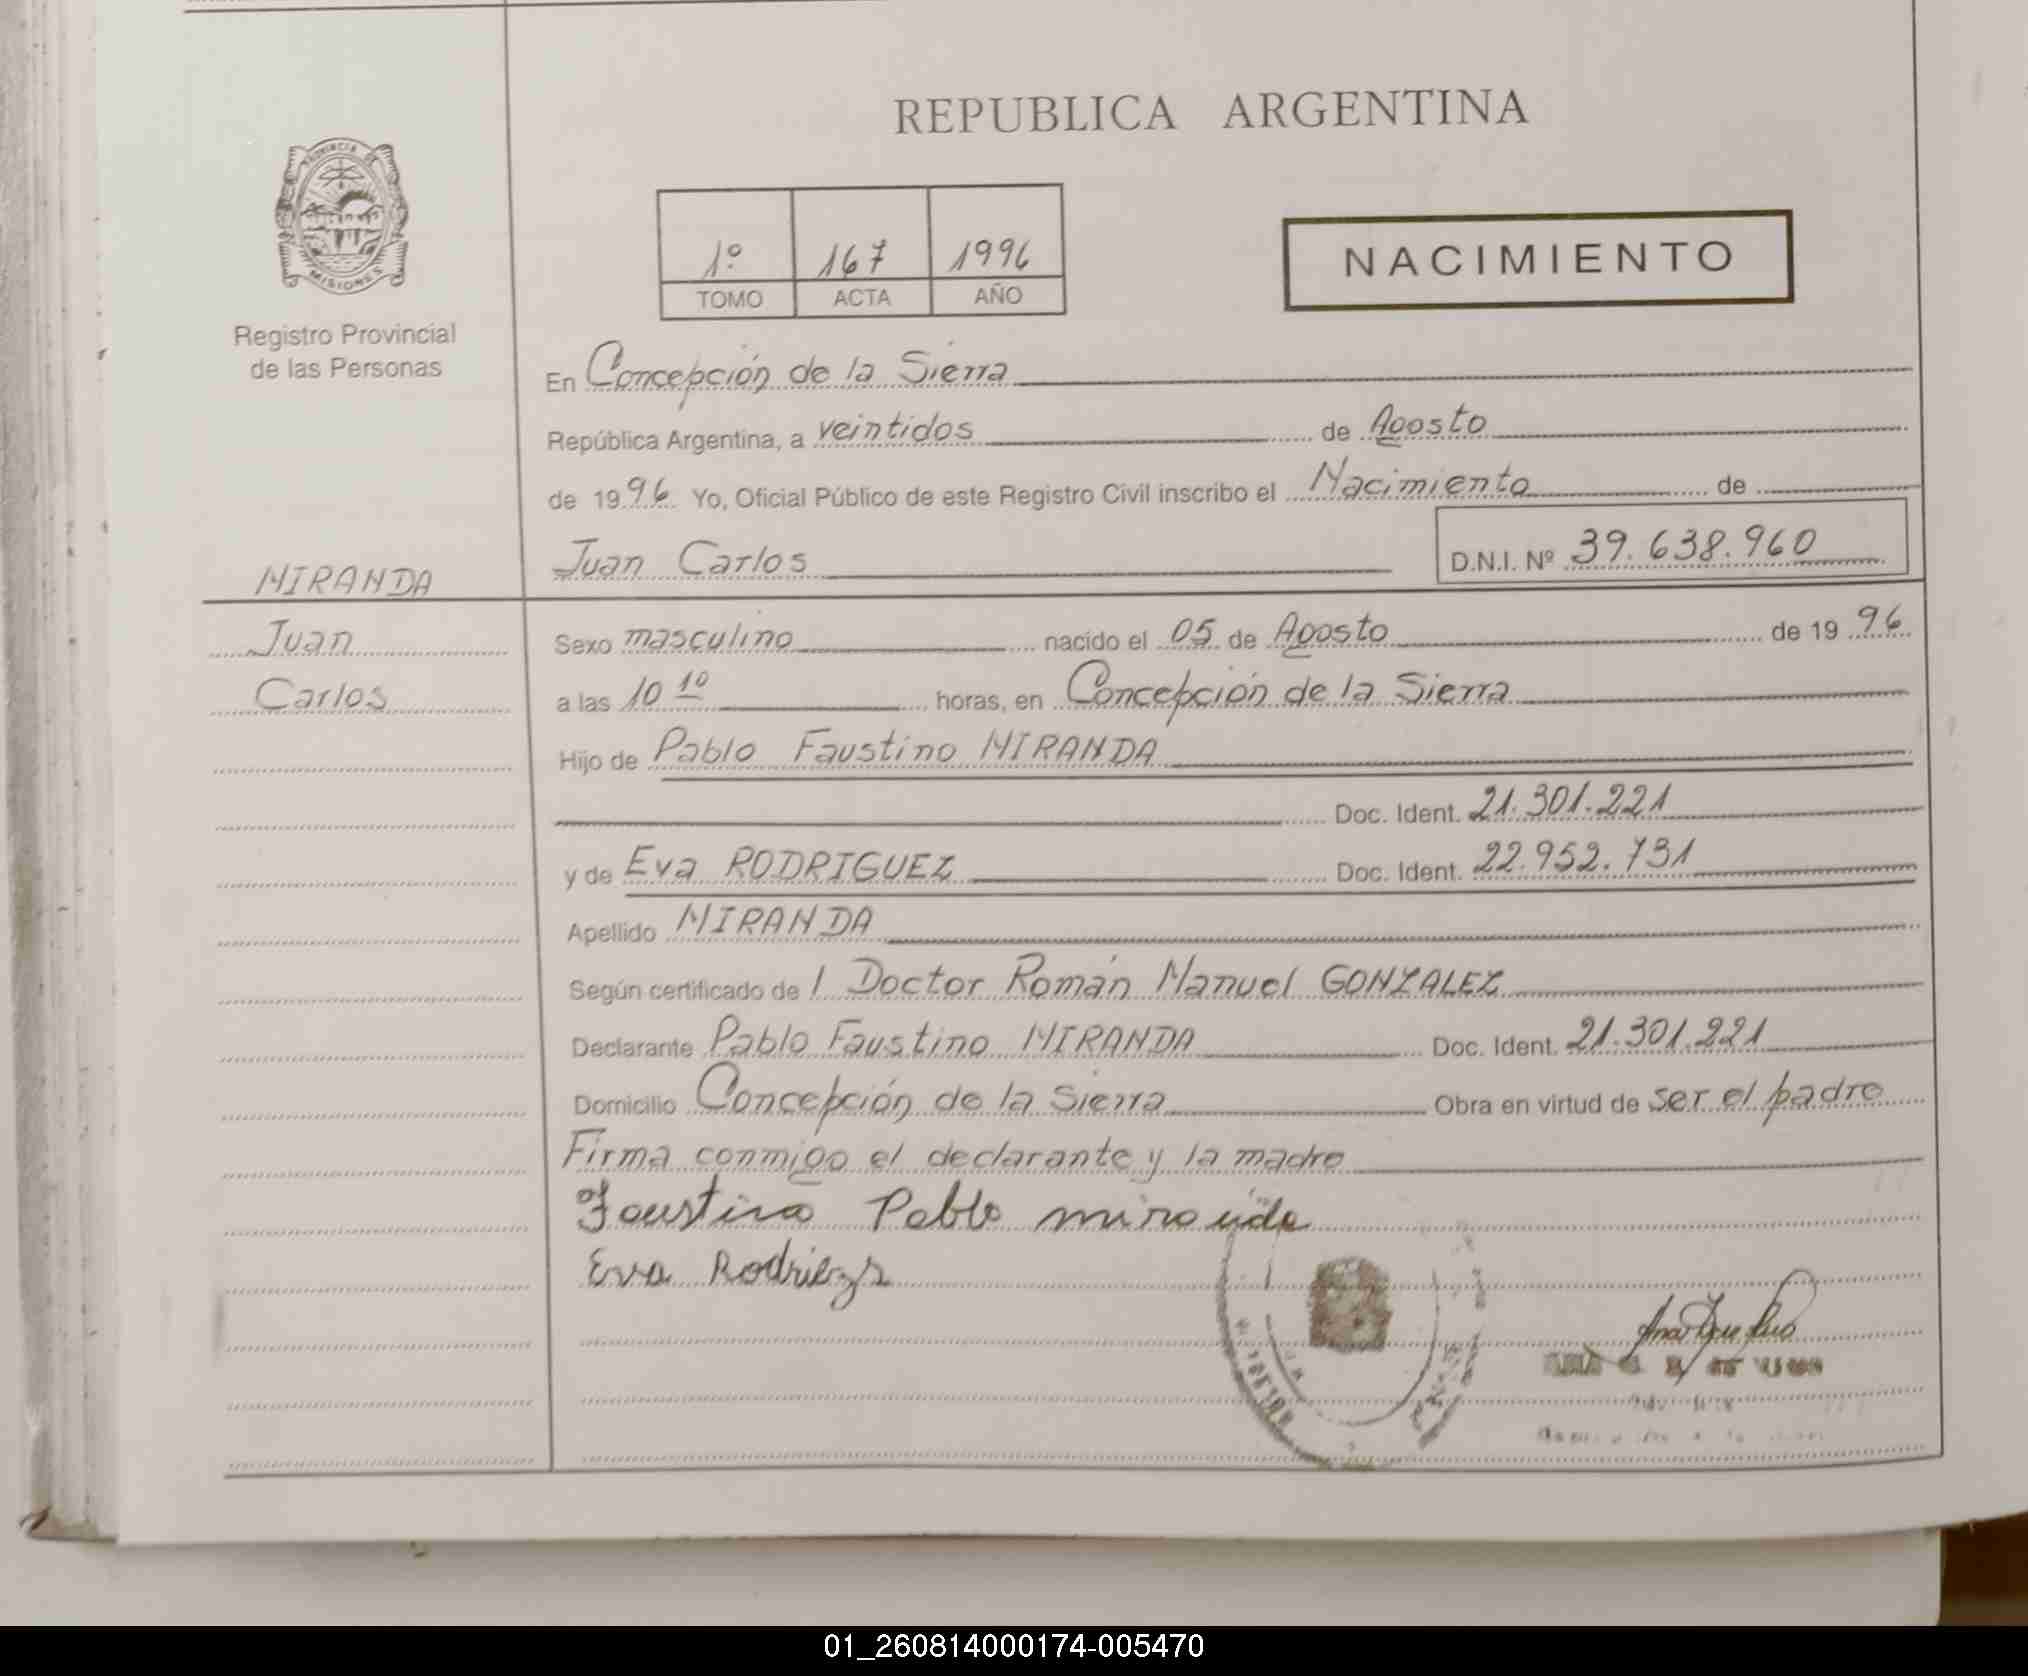 REPUBLICA ARGENTINA
PROVINCIA DE
MISIONES
Registro Provincial
de las Personas
1º 167 1996
TOMO ACTA AÑO
NACIMIENTO
En Concepción de la Sierra
República Argentina, a veintidos de Agosto
de 1996 Yo, Oficial Público de este Registro Civil inscribo el Nacimiento de
Juan Carlos D.N.I. Nº 39.638.960
MIRANDA
Juan
Carlos
Sexo masculino nacido el 05 de Agosto de 1996
a las 10 10 horas, en Concepción de la Sierra
Hijo de Pablo Faustino MIRANDA
Doc. Ident. 21.301.221
y de Eva RODRIGUEZ Doc. Ident. 22.952.731
Apellido MIRANDA
Según certificado de l Doctor Román Manuel GONZALEZ
Declarante Pablo Faustino MIRANDA Doc. Ident. 21.301.221
Domicilio Concepción de la Sierra Obra en virtud de ser el padre
Firma conmigo el declarante y la madre
Faustino Pablo miranda
Eva
01_260814000174-005470